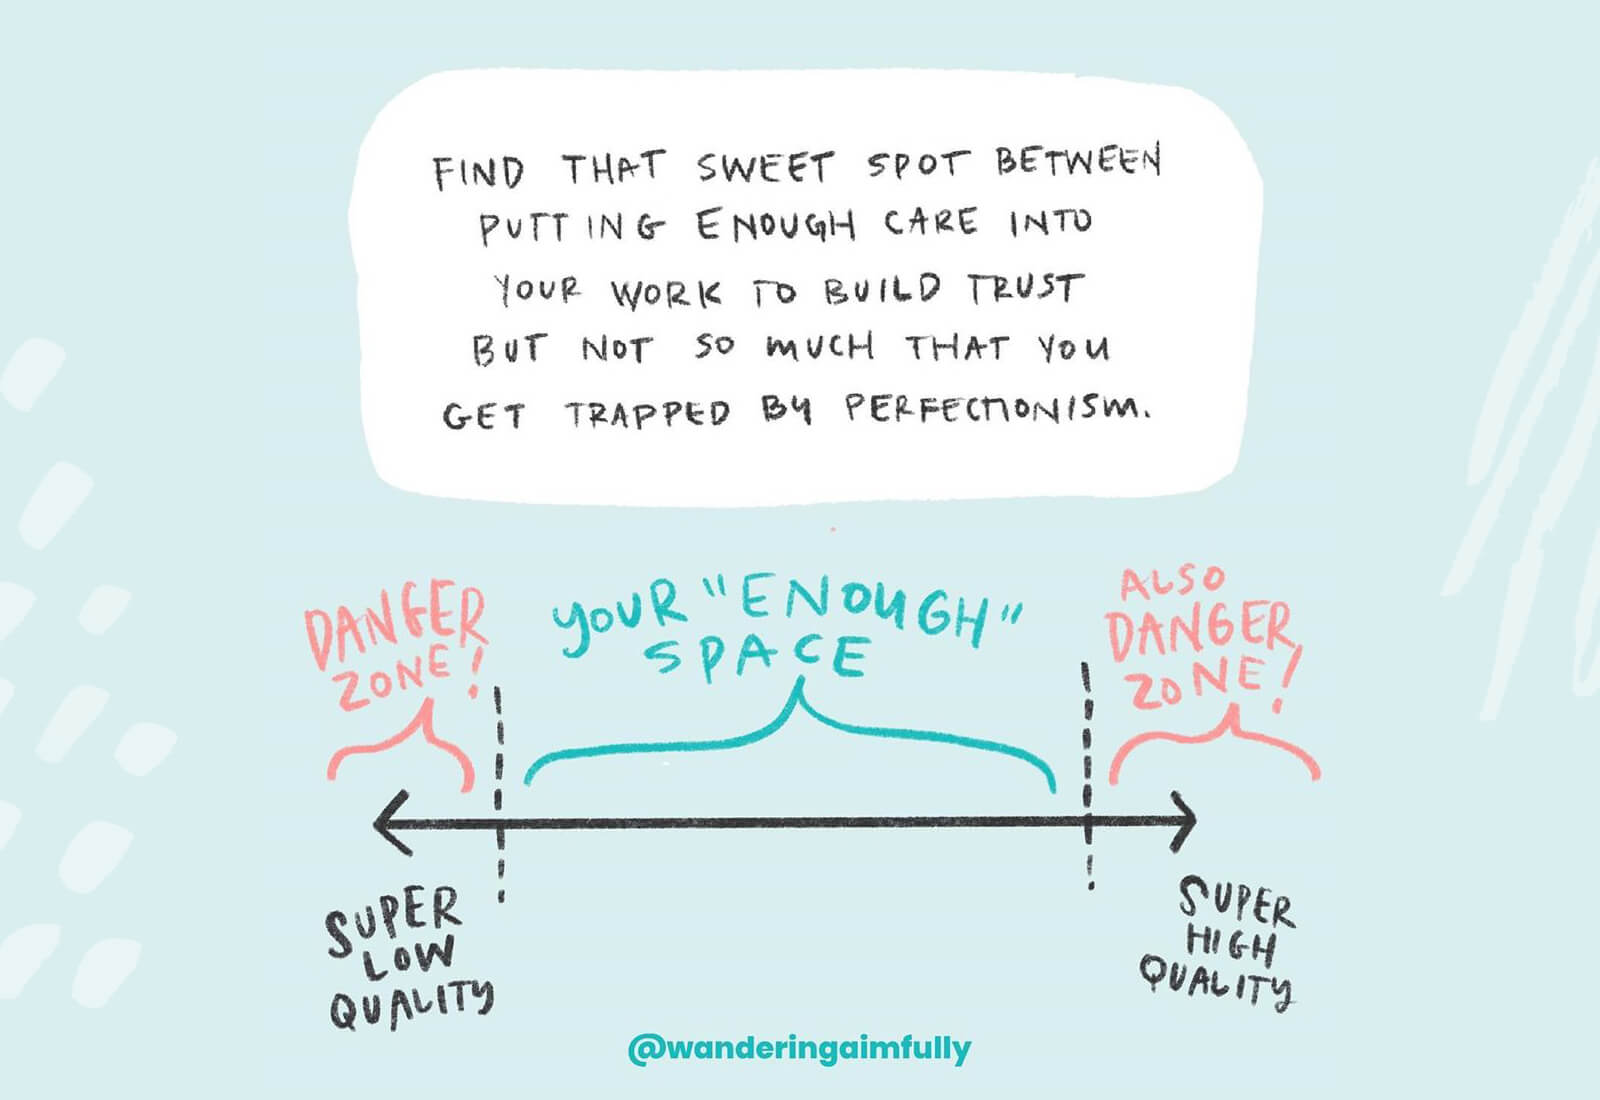 FIND THAT SWEET SPOT BETWEEN
PUTTING ENOUGH CARE INTO
YOUR WORK TO BUILD TRUST
BUT NOT SO MUCH THAT YOU
GET TRAPPED BY PERFECTIONISM.
DANGER
ZONE!
YOUR "ENOUGH"
SPACE
ALSO
DANGER
ZONE!
SUPER
LOW
QUALITY
SUPER
HIGH
QUALITY
@wanderingaimfully